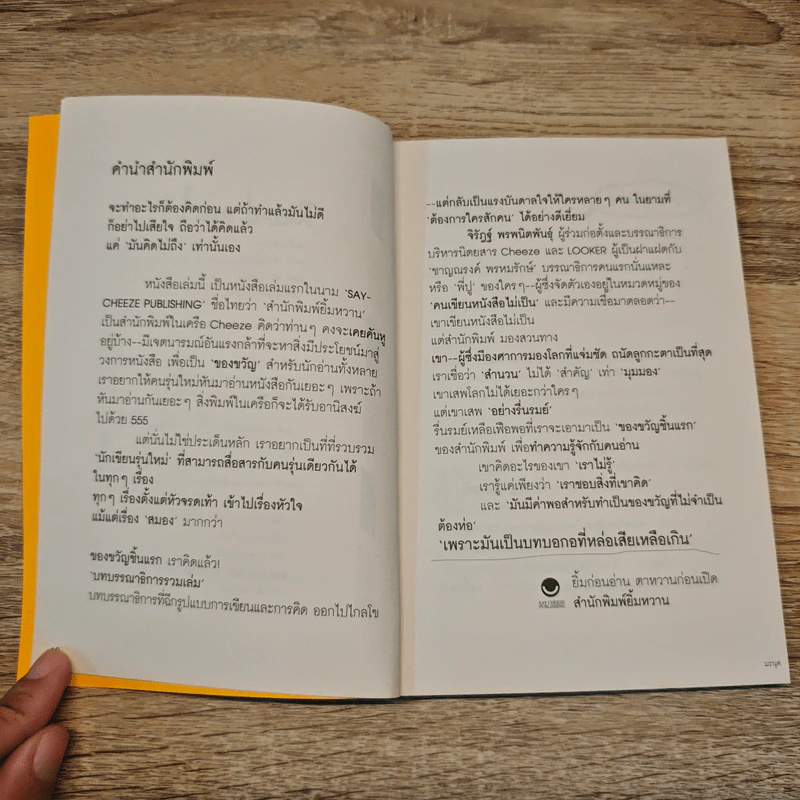 คำนำสำนักพิมพ์
จะทำอะไรก็ต้องคิดก่อน แต่ถ้าทำแล้วมันไม่ดี
ก็อย่าไปเสียใจ ถือว่าได้คิดแล้ว
แค่ 'มันคิดไม่ถึง' เท่านั้นเอง
หนังสือเล่มนี้ เป็นหนังสือเล่มแรกในนาม 'SAY-
CHEEZE PUBLISHING' ชื่อไทยว่า 'สำนักพิมพ์ยิ้มหวาน'
เป็นสำนักพิมพ์ในเครือ Cheeze คิดว่าท่านๆ คงจะเคยคันหู
อยู่บ้าง--มีเจตนารมณ์อันแรงกล้าที่จะหาสิ่งมีประโยชน์มาสู่
วงการหนังสือ เพื่อเป็น 'ของขวัญ' สำหรับนักอ่านทั้งหลาย
เราอยากให้คนรุ่นใหม่หันมาอ่านหนังสือกันเยอะๆ เพราะถ้า
หันมาอ่านกันเยอะๆ สิ่งพิมพ์ในเครือก็จะได้รับอานิสงฆ์
ไปด้วย 555
แต่นั่นไม่ใช่ประเด็นหลัก เราอยากเป็นที่ที่รวบรวม
'นักเขียนรุ่นใหม่' ที่สามารถสื่อสารกับคนรุ่นเดียวกันได้
ในทุกๆ เรื่อง
ทุกๆ เรื่องตั้งแต่หัวจรดเท้า เข้าไปเรื่องหัวใจ
แม้แต่เรื่อง 'สมอง' มากกว่า
ของขวัญชิ้นแรก เราคิดแล้ว!
'บทบรรณาธิการรวมเล่ม'
บทบรรณาธิการที่ฉีกรูปแบบการเขียนและการคิด ออกไปไกลโข
--แต่กลับเป็นแรงบันดาลใจให้ใครหลายๆ คน ในยามที่
'ต้องการใครสักคน' ได้อย่างดีเยี่ยม
จิรัฏฐ์ พรพนิตพันธุ์ ผู้ร่วมก่อตั้งและบรรณาธิการ
บริหารนิตยสาร Cheeze และ LOOKER ผู้เป็นฝาแฝดกับ
'ชาญณรงค์ พรหมรักษ์' บรรณาธิการคนแรกนั่นแหละ
หรือ 'พี่ปู' ของใครๆ--ผู้ซึ่งจัดตัวเองอยู่ในหมวดหมู่ของ
'คนเขียนหนังสือไม่เป็น' และมีความเชื่อมาตลอดว่า--
เขาเขียนหนังสือไม่เป็น
แต่สำนักพิมพ์ มองสวนทาง
เขา--ผู้ซึ่งมีองศาการมองโลกที่แจ่มชัด ถนัดลูกกะตาเป็นที่สุด
เราเชื่อว่า 'สำนวน' ไม่ได้ 'สำคัญ' เท่า 'มุมมอง'
เขาเสพโลกไม่ได้เยอะกว่าใครๆ
แต่เขาเสพ 'อย่างรื่นรมย์'
รื่นรมย์เหลือเฟือพอที่เราจะเอามาเป็น 'ของขวัญชิ้นแรก'
ของสำนักพิมพ์ เพื่อทำความรู้จักกับคนอ่าน
เขาคิดอะไรของเขา 'เราไม่รู้'
เรารู้แค่เพียงว่า 'เราชอบสิ่งที่เขาคิด'
และ 'มันมีค่าพอสำหรับทำเป็นของขวัญที่ไม่จำเป็น
ต้องห่อ'
'เพราะมันเป็นบทบอกอที่หล่อเสียเหลือเกิน'
ยิ้มก่อนอ่าน ตาหวานก่อนเปิด
SAY CHEEZE
PUBLISHING
สำนักพิมพ์ยิ้มหวาน
มะนุด